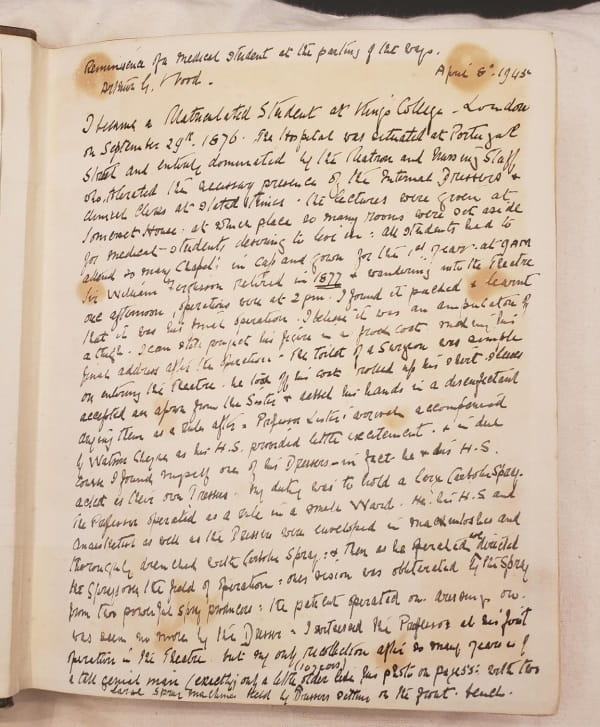 Reminiscence of a medical student at the parting of the ways.
Arthur G. Wood.
April 8th. 1945.
I became a Matriculated Student at King's College - London
on September 29th. 1876. The Hospital was situated at Portugal
Street and entirely dominated by the Matron and Nursing Staff
who tolerated the necessary presence of the Internal Dressers &
Clinical Clerks at stated times. The lectures were given at
Somerset House. at which place so many rooms were set aside
for medical students desiring to live in: all students had to
attend so many Chapels in Cap and gown for the 1st years. at 9 AM
Sir William Fergusson retired in 1877 & wandering into the Theatre
one afternoon, operations were at 2 pm. I found it packed & learnt
that it was his last operation. I believe it was an amputation of
a thigh. I can still project his figure in a frock coat making his
final address after the operation. The toilet of a Surgeon was simple
on entering the Theatre. he took off his coat rolled up his shirt sleeves
accepted an apron from the Sister & washed his hands in a disenfectant
drying them as a rule after. Professor Lister's arrival accompanied
by Watson Cheyne as his H.S. provided little excitement. & in due
course I found myself one of his Dressers - in fact he & his H.S.
acted as their own Dressers. My duty was to hold a large Carbolic Spray.
The Professor operated as a rule in a small Ward. He: his H.S and
Anaesthetist as well as the Dressers were enveloped in mackintoshes and
thoroughly drenched with Carbolic Spray: & then as he operated we directed
the Sprays over the field of operation: ones vision was obliterated by the Spray
from two powerful Spray producers: the patient operated on. dressings on.
was seen no more by the Dresser. I witnessed the Professor at his
operation in the Theatre. but my only recollection after so many years is of
a tall genial man (exactly only a little older like his photo on page 55: with two
large Spray machines held by Dressers sitting on the front bench.